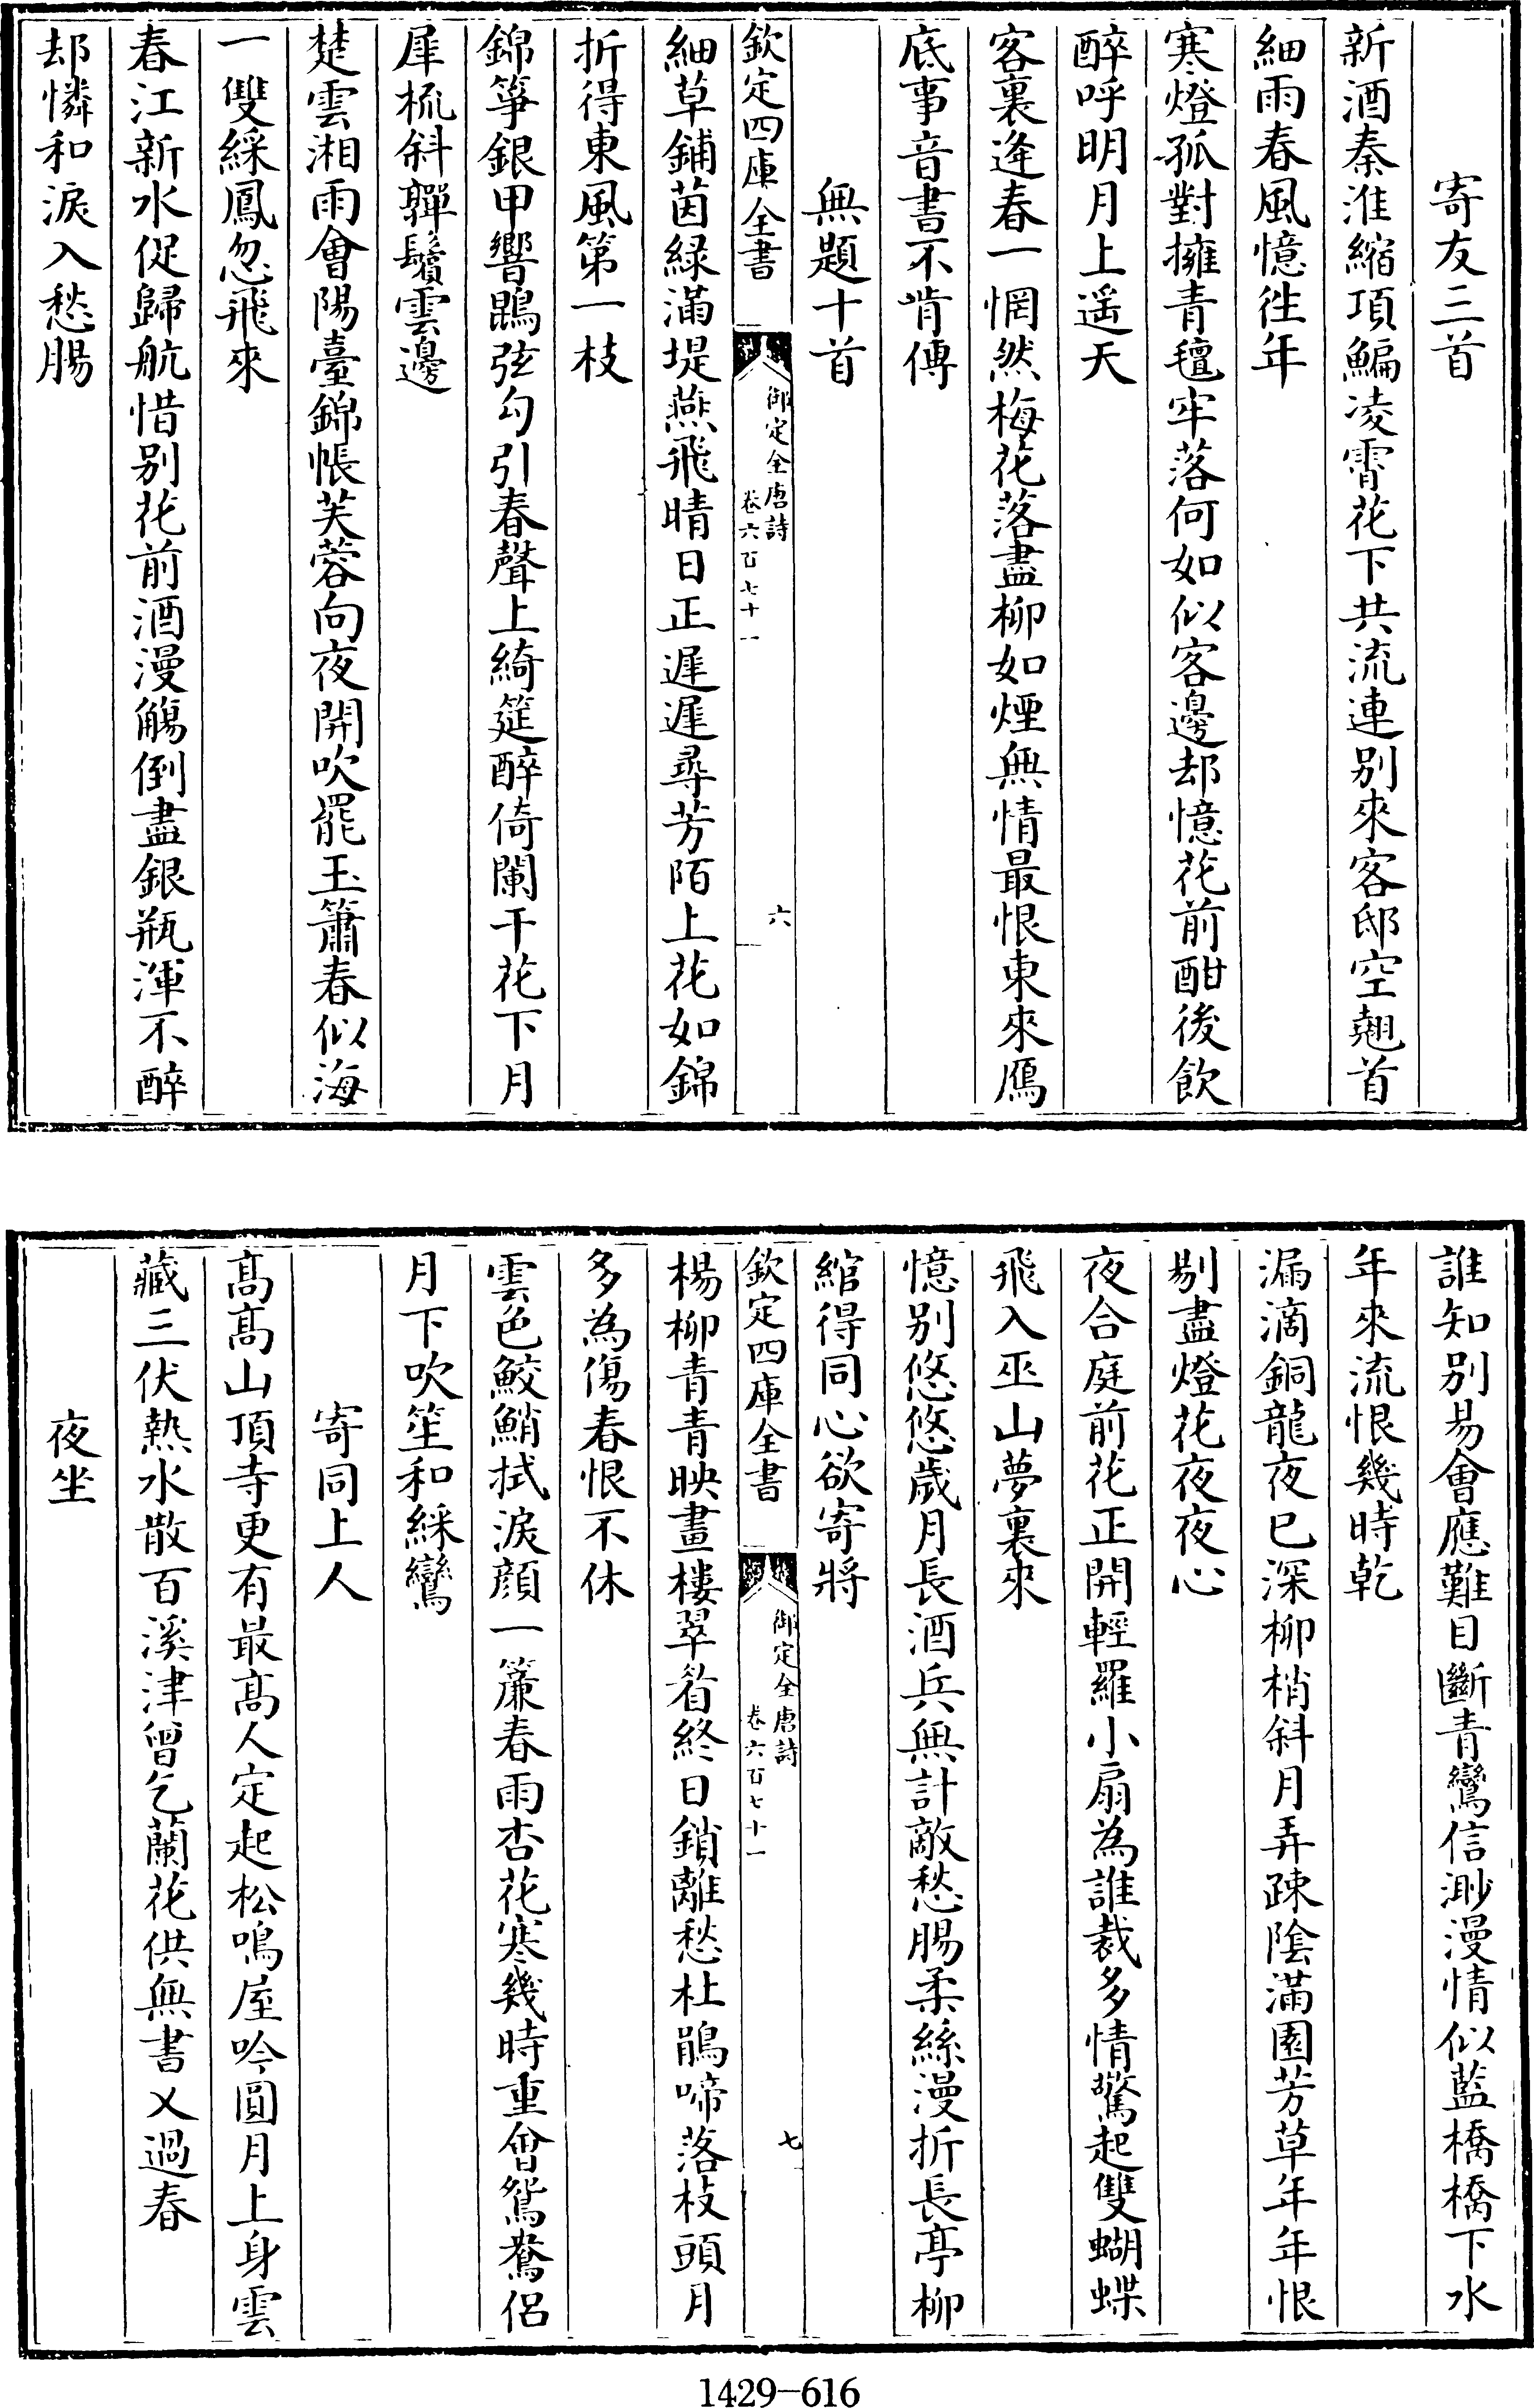 寄友三首
新酒秦淮縮項鯿凌霄花下共流連别來客邸空翹首
細雨春風憶徃年
寒燈孤對擁青氊牢落何如似客邊却憶花前酣後飲
醉呼明月上遥天
客裏逢春一惘然梅花落盡柳如煙無情最恨東來鴈
底事音書不肯傳
無題十首
欽定四庫全書
御定全唐詩
卷六百七十一
六
細草鋪茵緑滿堤燕飛晴日正遲遲尋芳陌上花如錦
折得東風第一枝
錦箏銀甲響鵾弦勾引春聲上綺筵醉倚闌干花下月
犀梳斜嚲鬢雲邊
楚雲湘雨會陽臺錦帳芙蓉向夜開吹罷玉簫春似海
一雙綵鳳忽飛來
春江新水促歸航惜别花前酒漫觴倒盡銀瓶渾不醉
却憐和淚入愁腸
誰知别易會應難目斷青鸞信渺漫情似藍橋橋下水
年來流恨幾時乾
漏滴銅龍夜已深柳梢斜月弄疎陰滿園芳草年年恨
剔盡燈花夜夜心
夜合庭前花正開輕羅小扇為誰裁多情驚起雙蝴蝶
飛入巫山夢裏來
憶别悠悠歲月長酒兵無計敵愁腸柔絲漫折長亭柳
綰得同心欲寄將
欽定四庫全書
御定全唐詩
卷六百七十一
七
楊柳青青映畫樓翠眉終日鎖離愁杜鵑啼落枝頭月
多為傷春恨不休
雲色鮫鮹拭淚顔一簾春雨杏花寒幾時重會鴛鴦侣
月下吹笙和綵鸞
寄同上人
髙髙山頂寺更有最髙人定起松鳴屋吟圓月上身雲
藏三伏熱水散百溪津曾乞蘭花供無書又過春
夜坐
1429-616